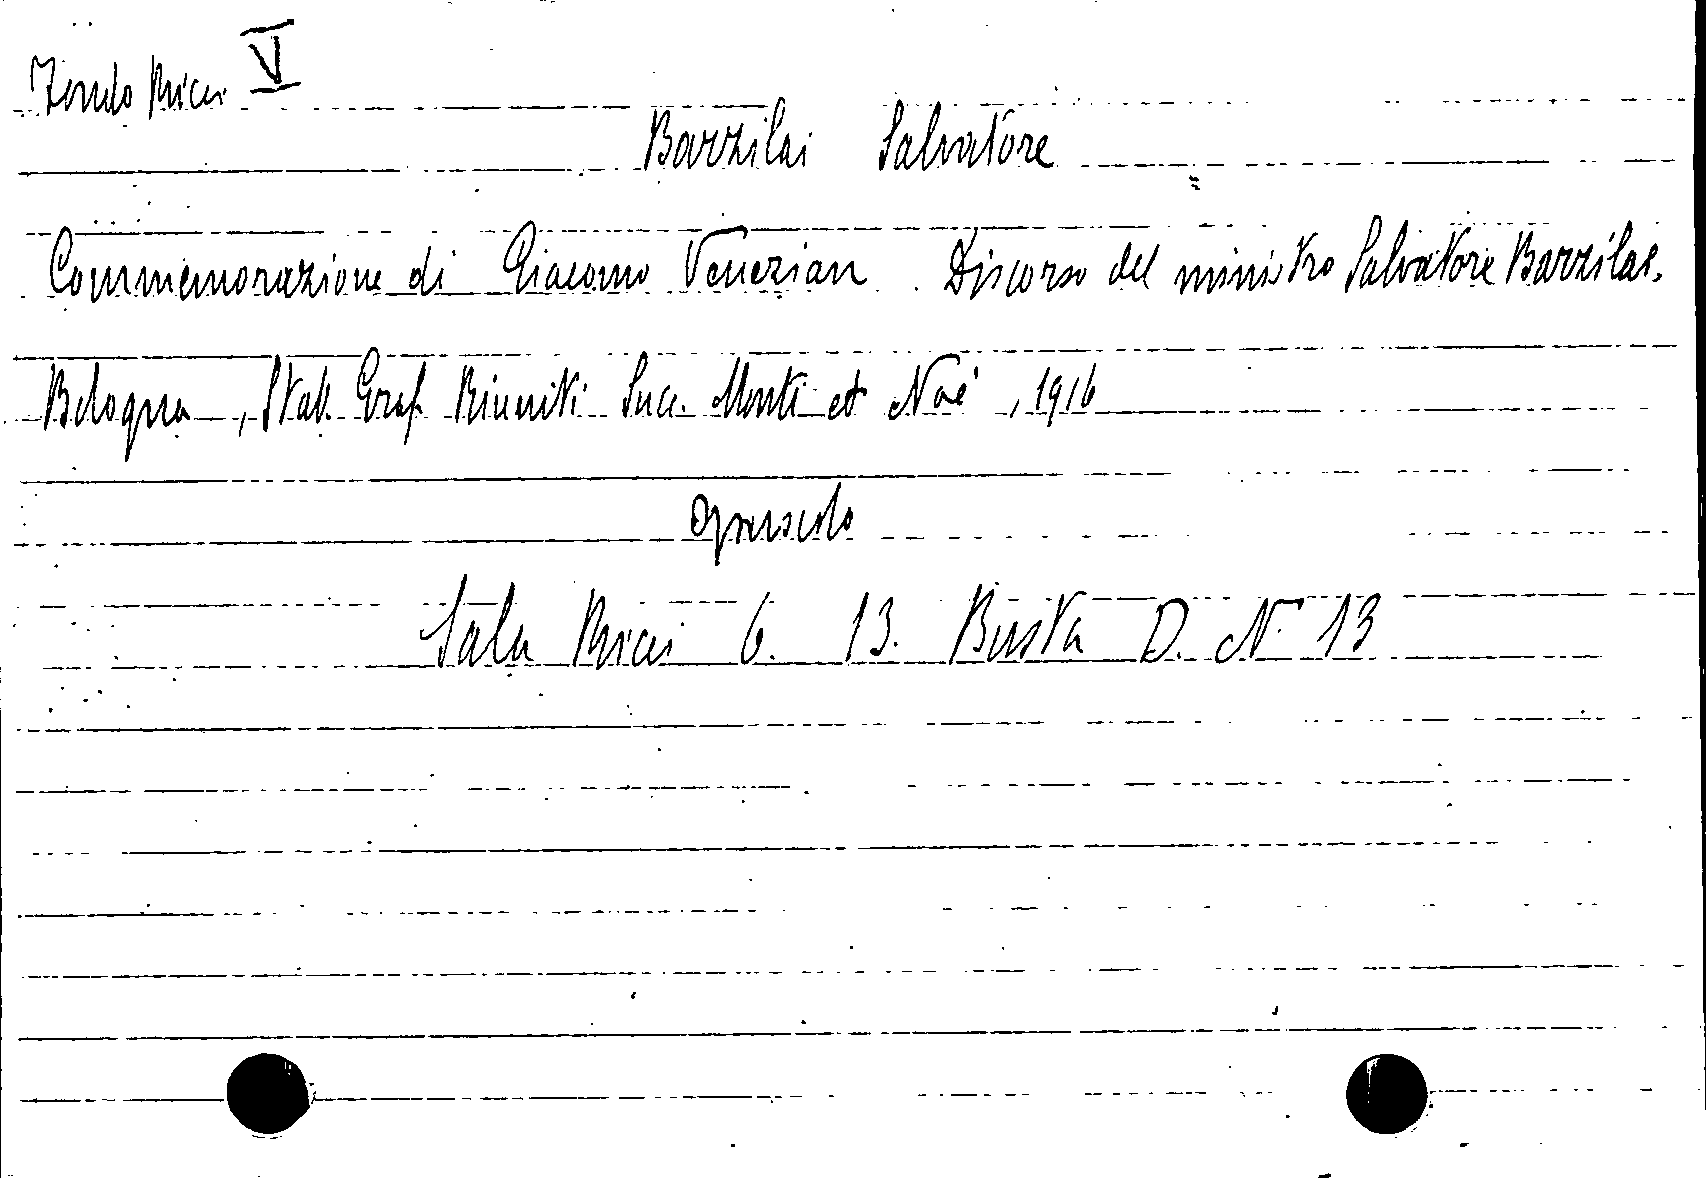 Fondo Ricci V
Barzilai Salvatore
Commemorazione di Giacomo Venezian. Discorso del ministro Salvatore Barzilai.
Bologna, Stab. Graf. Riuniti Succ. Monti et Noè, 1916
opuscolo
Sala Ricci 6. 13. Busta D. N. 13